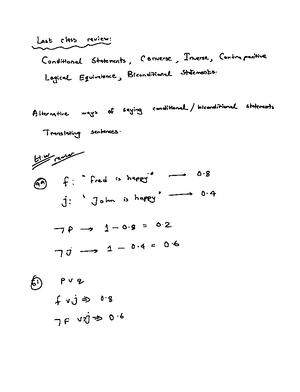 Last class review:
Conditional Statements, Converse, Inverse, Contrapositive
Logical Equivalence, Biconditional Statements.
Alternative ways of saying conditional/biconditional statements
Translating sentences.
H.W review
f: "Fred is happy" → 0.8
j: "John is happy" → 0.4
¬F → 1 - 0.8 = 0.2
¬j → 1 - 0.4 = 0.6
P ∨ q
f ∨ j ⇒ 0.8
¬F ∨ ¬j ⇒ 0.6